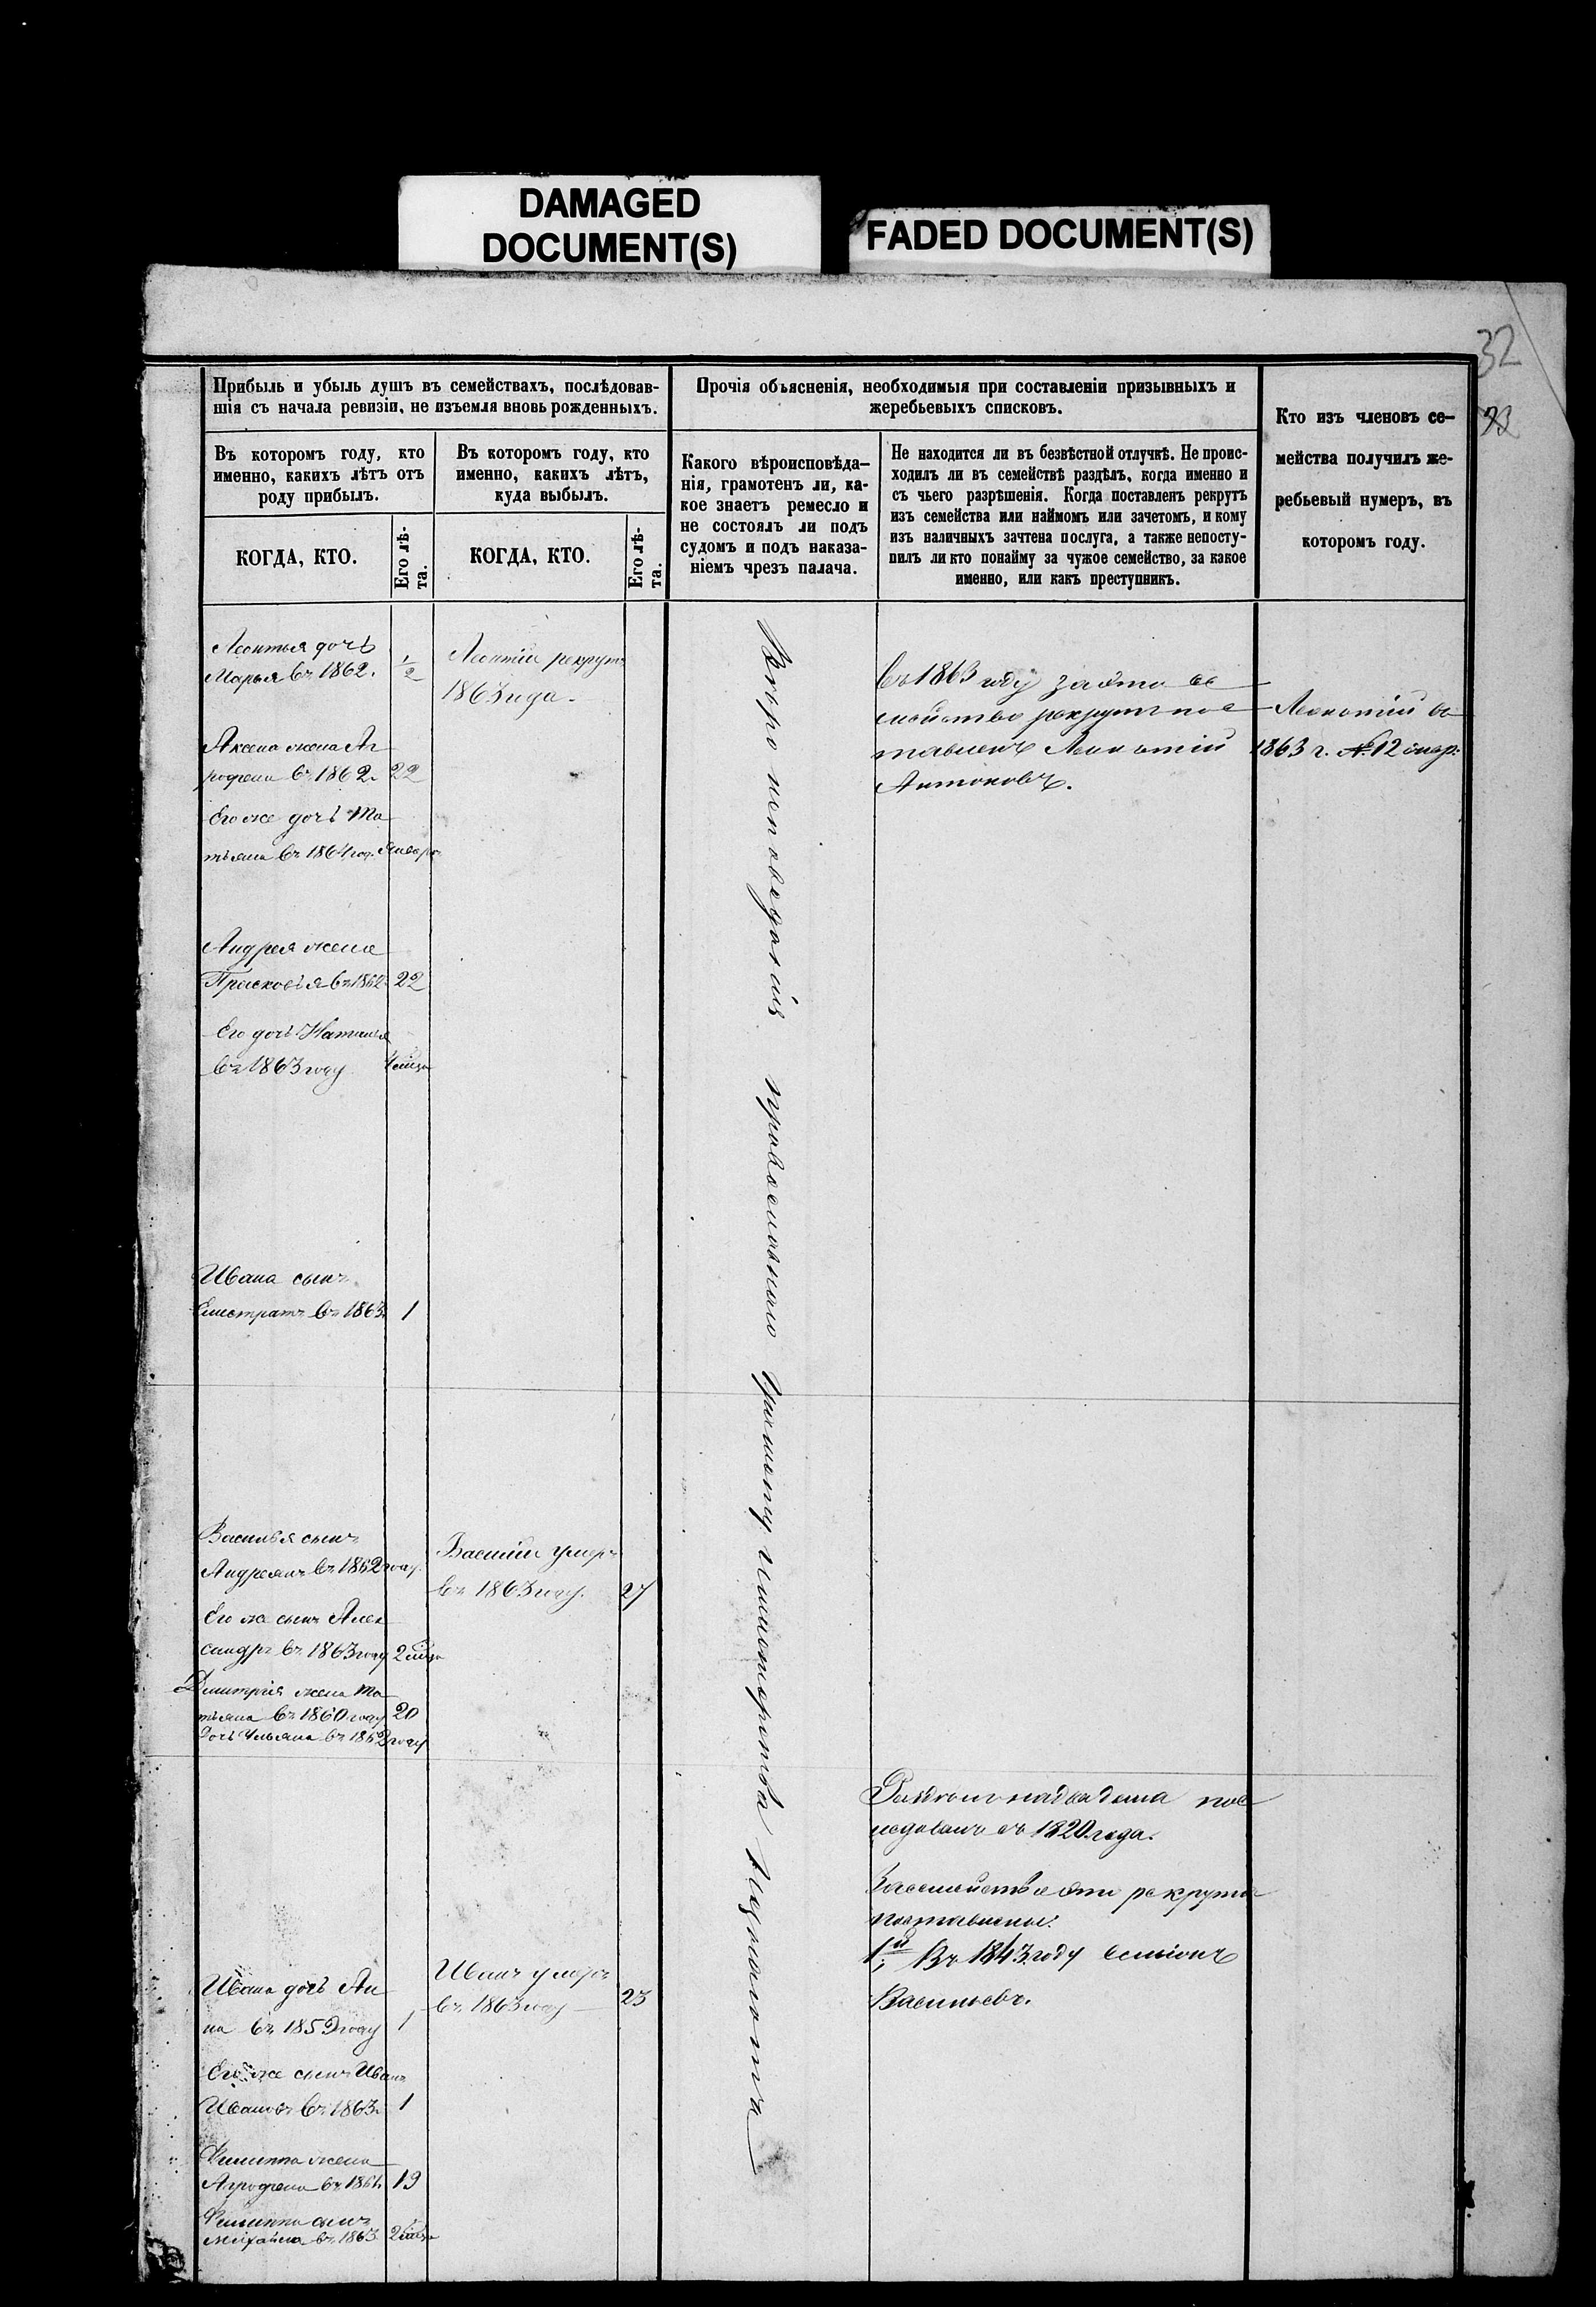 DAMAGED
DOCUMENT(S)
FADED DOCUMENT(S)
32
Прибыль и убыль душъ въ семействахъ, послѣдовав-
шія съ начала ревизіи, не изъемля вновь рожденныхъ.
Въ которомъ году, кто
именно, какихъ лѣтъ отъ
роду прибылъ.
КОГДА, КТО.
Его лѣ-
та.
Въ которомъ году, кто
именно, какихъ лѣтъ,
куда выбылъ.
КОГДА, КТО.
Его лѣ-
та.
Прочія объясненія, необходимыя при составленіи призывныхъ и
жеребьевыхъ списковъ.
Какого вѣроисповѣда-
нія, грамотенъ ли, ка-
кое знаетъ ремесло и
не состоялъ ли подъ
судомъ и подъ наказа-
ніемъ чрезъ палача.
Не находится ли въ безвѣстной отлучкѣ. Не проис-
ходилъ ли въ семействѣ раздѣлъ, когда именно и
съ чьего разрѣшенія. Когда поставленъ рекрутъ
изъ семейства или наймомъ или зачетомъ, и кому
изъ наличныхъ зачтена послуга, а также непосту-
пилъ ли кто понайму за чужое семейство, за какое
именно, или какъ преступникъ.
Кто изъ членовъ се-
мейства получилъ же-
ребьевый нумеръ, въ
которомъ году.
Леонтья дочь
Марья въ 1862. 1/2
Аксена жена Аг
рофена въ 1862. 22
Его же дочь Та
тьяна въ 1864 год. Январ
Андрея жена
Прасковья въ 1862 22
Его дочь Наталья
въ 1863 году
Ивана сынъ
Елистратъ въ 1863. 1
Василья сынъ
Андреянъ въ 1862 году
Его же сынъ Алек
сандръ въ 1863 году 2
Дмитрія жена Та
тьяна въ 1860 году 20
Дочь Ульяна въ 1862 году
Ивана дочь Ан
на въ 1859 году 1
Его же сынъ Иванъ
Ивановъ въ 1863. 1
Филиппа жена
Агрофена въ 1861. 19
Филиппа сынъ
Михайла въ 1863 2
Леонтій рекрутъ
1863 года.
Василій умеръ
въ 1863 году. 27
Иванъ умеръ
въ 1863 году 23
Вѣро исповеданія православнаго грамоту и мастерства не
въ 1863 году за это се
мейство рекрутъ пос
тавленъ Леонтій
Антоновъ.
Леонтій въ
1863 г. № 12
пос
ледовалъ съ 1820 года.
За семейство это рекруты
поставлены:
1й, Въ 1843 году
Васильевъ.